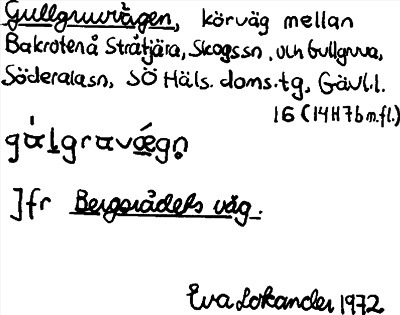 Gullgruvägen, körväg mellan
Bakrotenå Stråtjära, Skogssn, och Gullgruva,
Söderalasn, SÖ Häls. doms.tg, Gävl.l.
16 (14H7b m.fl.)
Jfr Bergsrådets väg.
Eva Lokander 1972